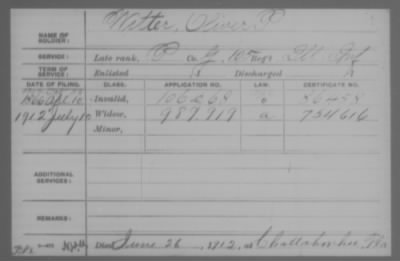 NAME OF SOLDIER: Witter, Oliver P.
SERVICE: Late rank, P Co. G, 105 Reg't Ill. Inf
TERM OF SERVICE: Enlisted 18 Discharged 18
DATE OF FILING. CLASS. APPLICATION NO. LAW. CERTIFICATE NO.
1866 Apl 10 Invalid, 106269
1912 July 10 Widow, 989919 a 754616
Minor,
ADDITIONAL SERVICES:
REMARKS:
Died June 26, 1912, at Chattahoochee, Fla